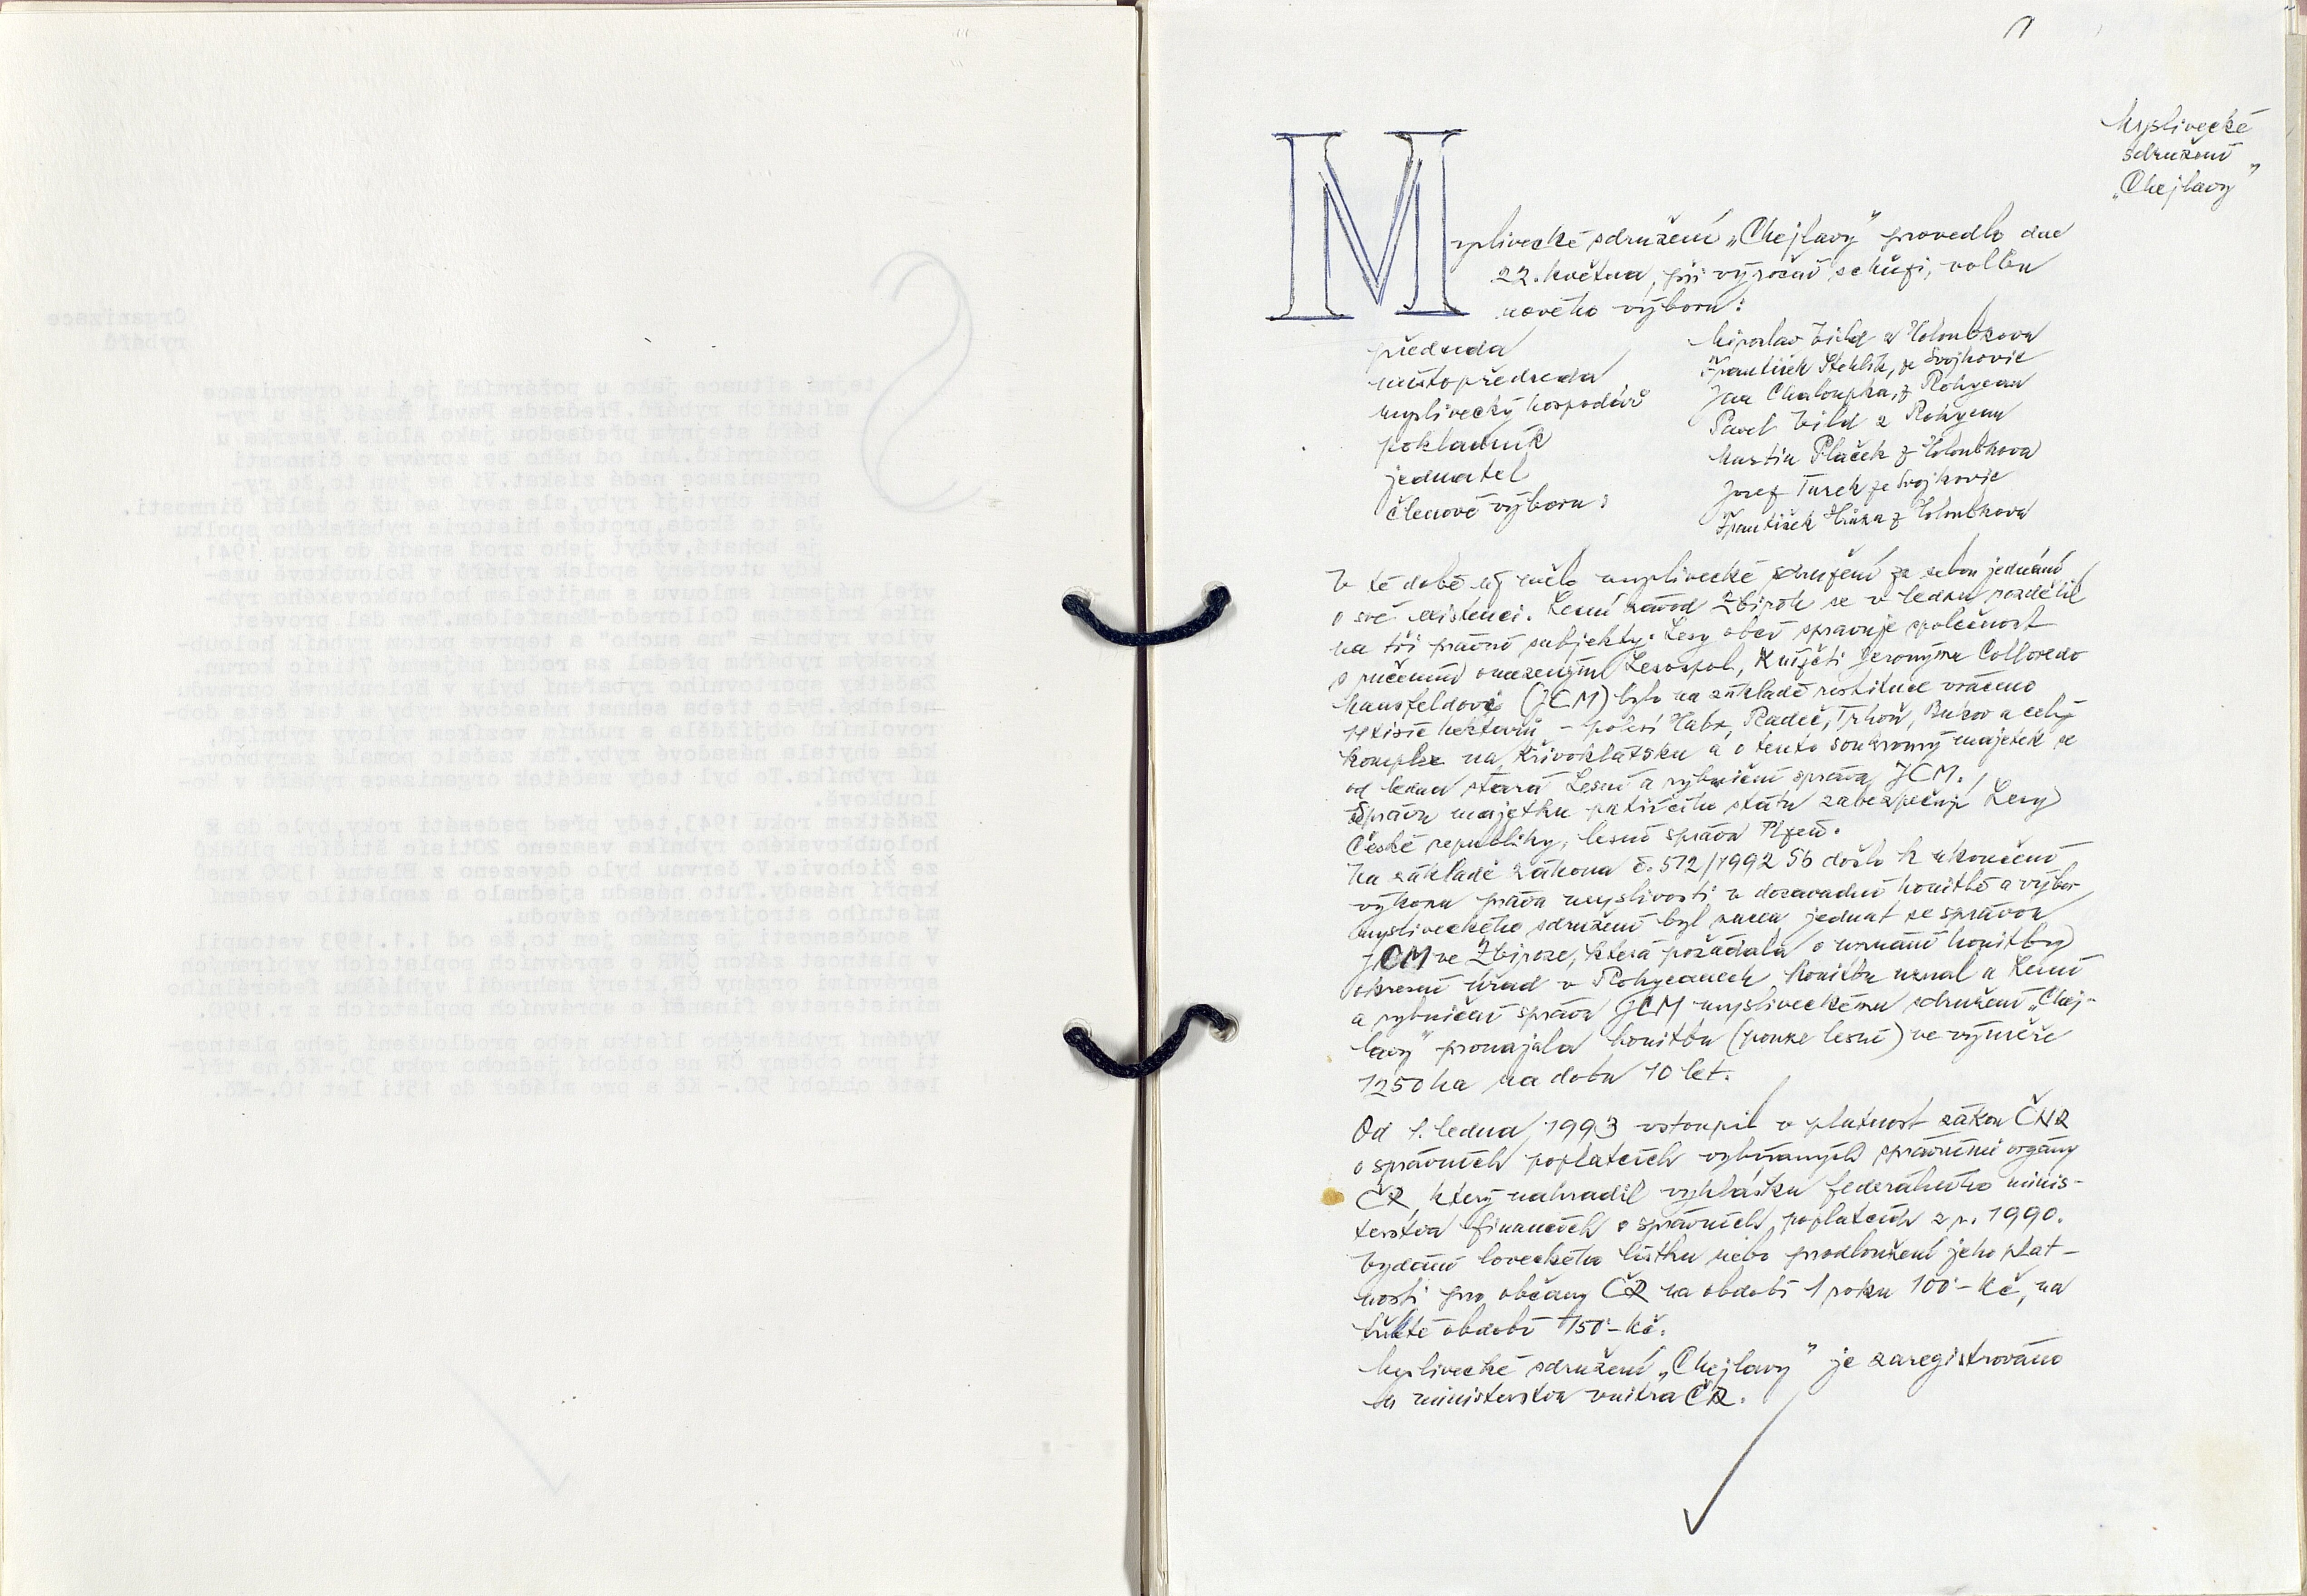 Myslivecké
sdružení
„Chejlavy"
Myslivecké sdružení „Chejlavy" provedlo dne
22. května, při výroční schůzi, volbu
nového výboru:
předseda Miroslav Vild z Holoubkova
místopředseda František Stehlík, ze Svojkovic
myslivecký hospodář Jan Chaloupka, z Rokycan
pokladník Pavel Vild z Rokycan
jednatel Martin Plaček z Holoubkova
členové výboru: Josef Turek ze Svojkovic
František z Holoubkova
V té době již mělo myslivecké sdružení za sebou jednání
o své existenci. Lesní závod Zbiroh se v lednu rozdělil
na tři právní subjekty. Lesy obcí spravuje společnost
s ručením omezeným Lesospol, Knížeti Jeronýmu Colloredo
Mansfeldovi (JCM) bylo na základě restituce vráceno
14 tisíc hektarů - polesí Habr, Radeč, Trhoň, Bukov a celý
komplex na Křivoklátsku a o tento soukromý majetek se
od ledna stará Lesní a rybniční správa JCM.
Správu majetku patřícího státu zabezpečují Lesy
České republiky, lesní správa Plzeň.
Na základě zákona č. 512/1992 Sb došlo k ukončení
výkonu práva myslivosti v dosavadní honitbě a výbor
mysliveckého sdružení byl nucen jednat se správou
JCM ve Zbiroze, která požádala o uznání honitby
okresní úřad v Rokycanech honitbu uznal a Lesní
a rybniční správa JCM mysliveckému sdružení „Chej-
lavy" pronajala honitbu (pouze lesní) ve výměře
1250 ha na dobu 10 let.
Od 1. ledna 1993 vstoupil v platnost zákon ČNR
o správních poplatcích vybíraných správními orgány
ČR, který nahradil vyhlášku federálního minis-
terstva financích o správních poplatcích z r. 1990.
Vydání loveckého lístku nebo prodloužení jeho plat-
nosti pro občany ČR na období 1 roku 100'- Kč, na
tříleté období 150'- Kč.
Myslivecké sdružení „Chejlavy" je zaregistrováno
u ministerstva vnitra ČR.